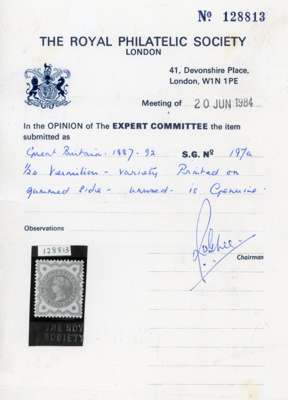 Nº 128813
THE ROYAL PHILATELIC SOCIETY
LONDON
41, Devonshire Place,
London, W1N 1PE
Meeting of 20 JUN 1984
In the OPINION of The EXPERT COMMITTEE the item
submitted as
Great Britain. 1887-92 S.G. Nº 197a
½d Vermilion - variety Printed on
gummed side - unused - is Genuine.
Observations
Chairman
128813
THE ROY
SOCIETY